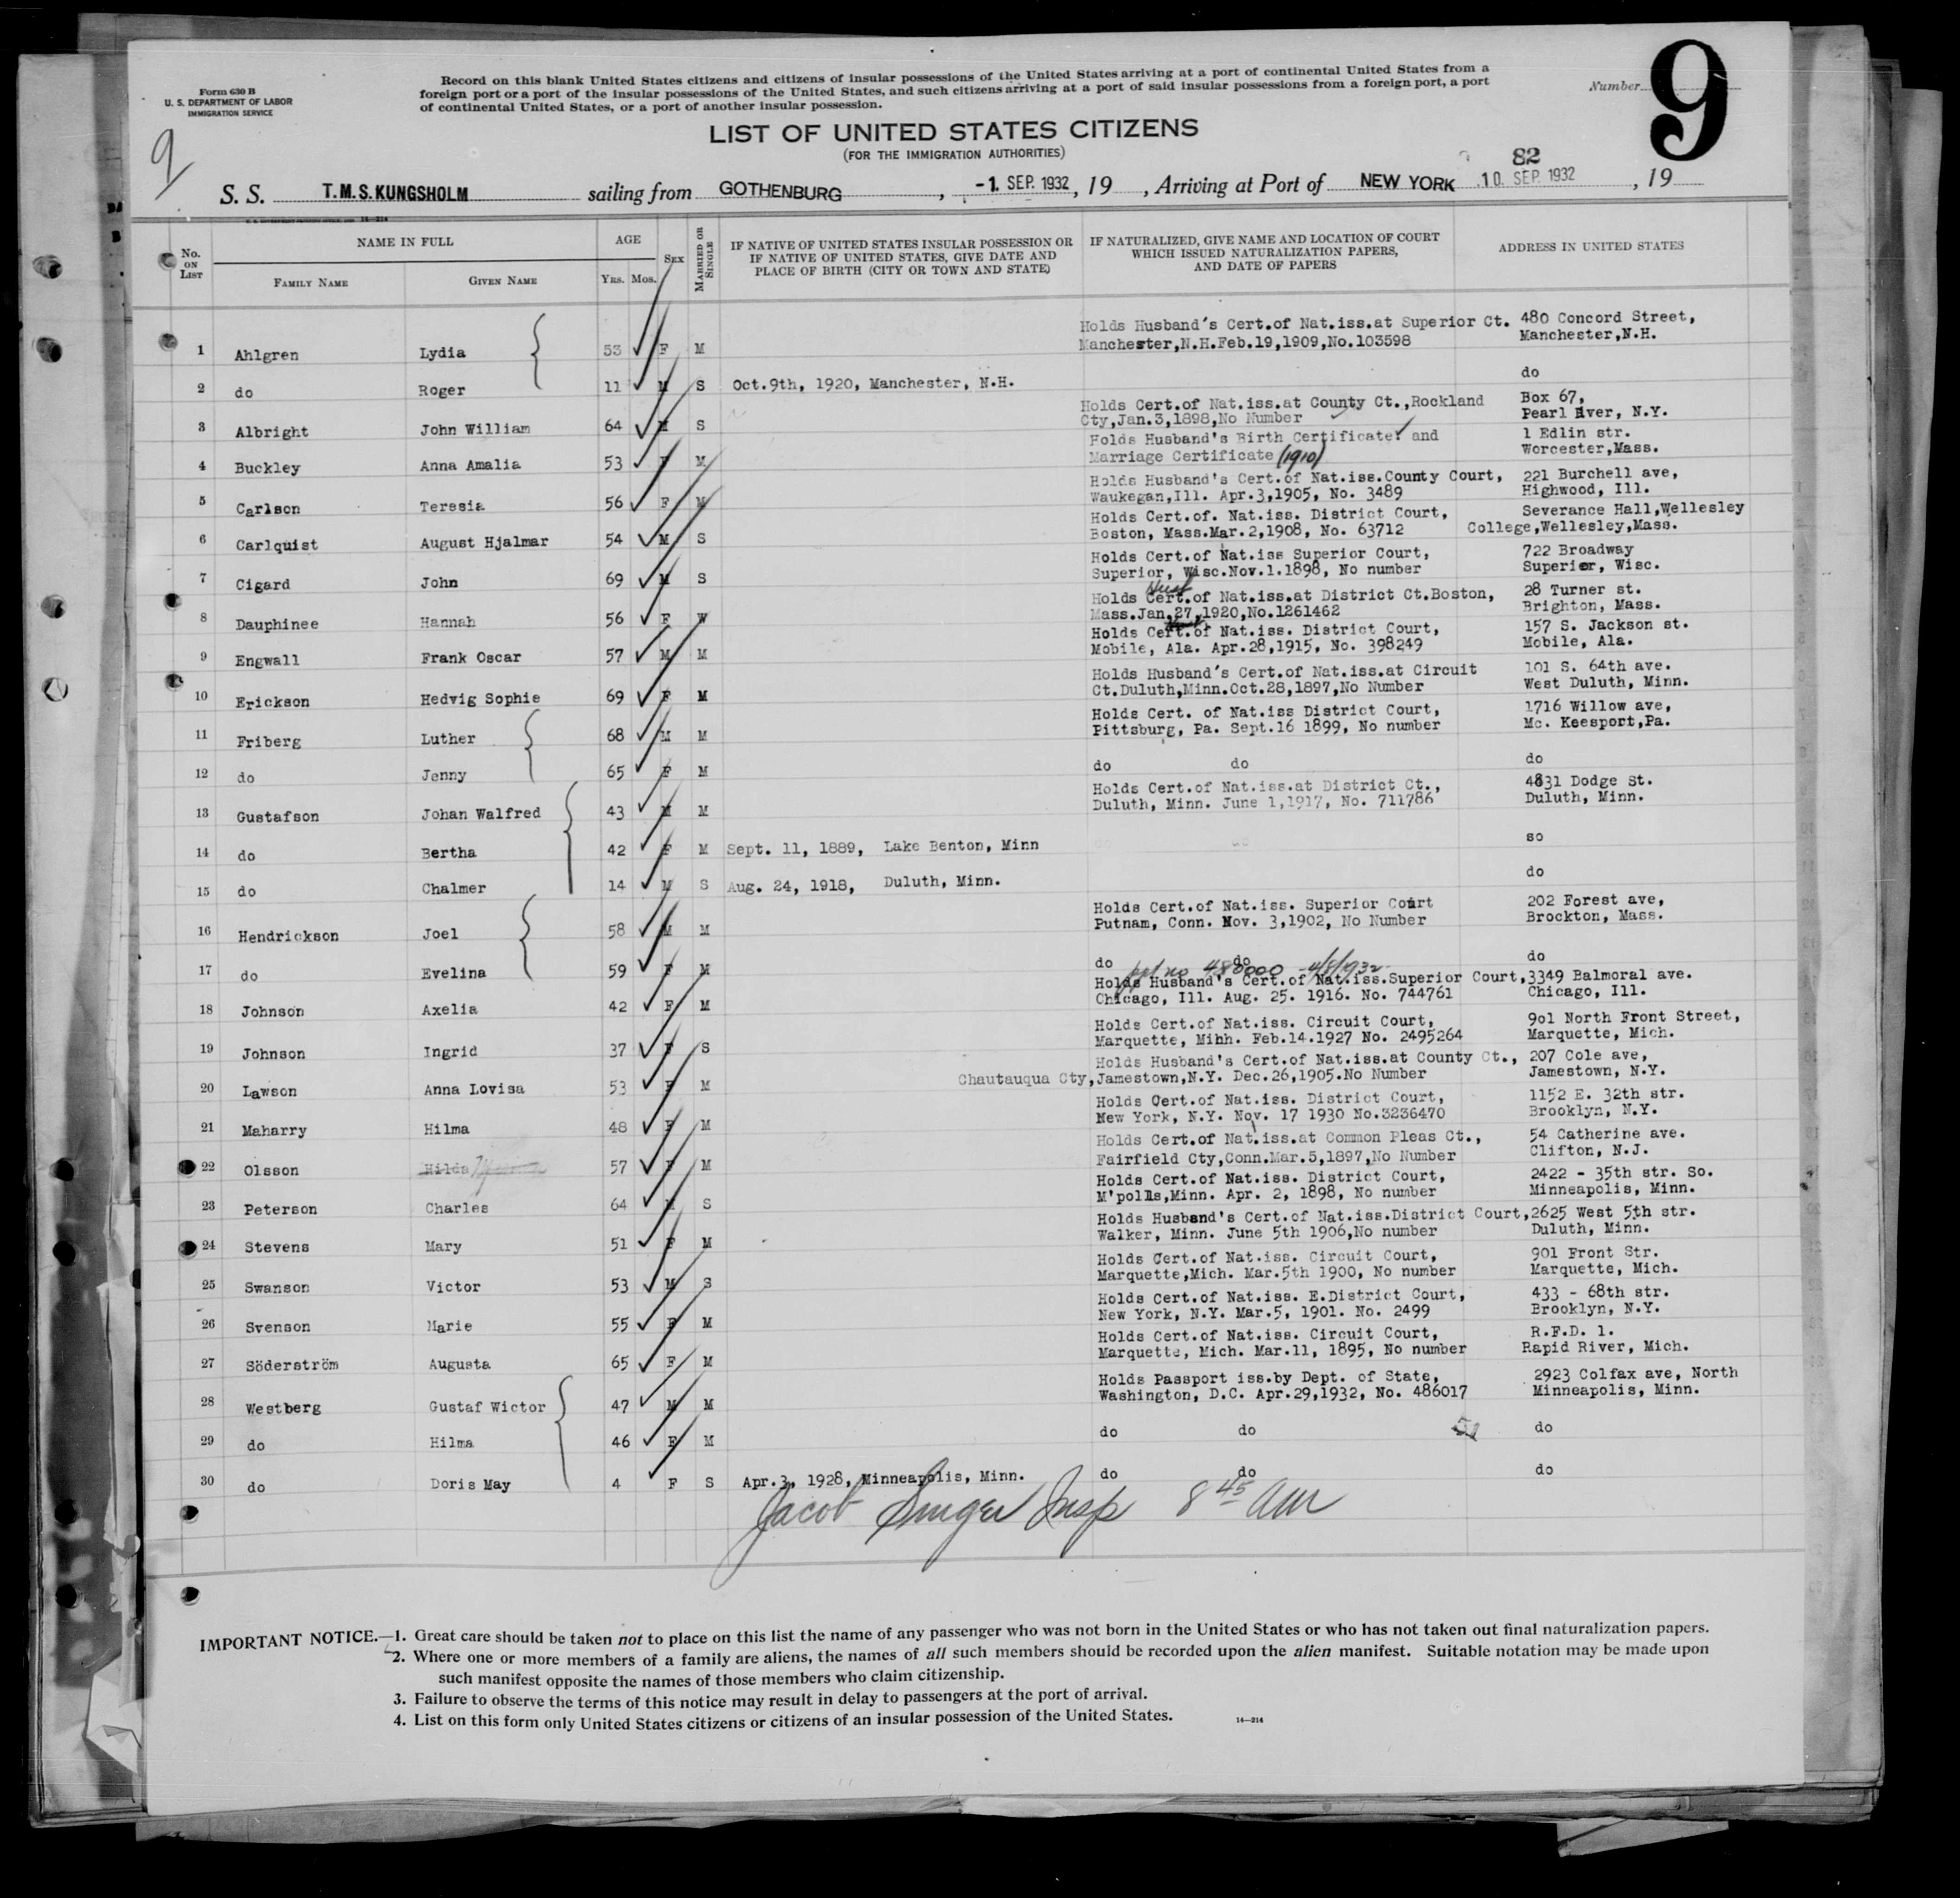 Form 630 B
U. S. DEPARTMENT OF LABOR
IMMIGRATION SERVICE
Record on this blank United States citizens and citizens of insular possessions of the United States arriving at a port of continental United States from a
foreign port or a port of the insular possessions of the United States, and such citizens arriving at a port of said insular possessions from a foreign port, a port
of continental United States, or a port of another insular possession.
Number 9
9
LIST OF UNITED STATES CITIZENS
(FOR THE IMMIGRATION AUTHORITIES)
82
S. S. T.M.S. KUNGSHOLM sailing from GOTHENBURG, -1. SEP. 1932, 19 , Arriving at Port of NEW YORK 10. SEP. 1932, 19
No. ON LIST
NAME IN FULL
FAMILY NAME
GIVEN NAME
AGE
YRS. MOS.
SEX
MARRIED OR SINGLE
IF NATIVE OF UNITED STATES INSULAR POSSESSION OR
IF NATIVE OF UNITED STATES, GIVE DATE AND
PLACE OF BIRTH (CITY OR TOWN AND STATE)
IF NATURALIZED, GIVE NAME AND LOCATION OF COURT
WHICH ISSUED NATURALIZATION PAPERS,
AND DATE OF PAPERS
ADDRESS IN UNITED STATES
Holds Husband's Cert.of Nat.iss.at Superior Ct. 480 Concord Street,
1 Ahlgren Lydia 53 F M Manchester,N.H.Feb.19,1909,No.103598 Manchester,N.H.
2 do Roger 11 M S Oct.9th, 1920, Manchester, N.H. do
Holds Cert.of Nat.iss.at County Ct.,Rockland Box 67,
3 Albright John William 64 M S Cty,Jan.3,1898,No Number Pearl River, N.Y.
Holds Husband's Birth Certificate and 1 Edlin str.
4 Buckley Anna Amalia 53 F M Marriage Certificate (1910) Worcester,Mass.
Holds Husband's Cert.of Nat.iss.County Court, 221 Burchell ave,
5 Carlson Teresia 56 F M Waukegan,Ill. Apr.3,1905, No. 3489 Highwood, Ill.
Holds Cert.of. Nat.iss. District Court, Severance Hall,Wellesley
6 Carlquist August Hjalmar 54 M S Boston, Mass.Mar.2,1908, No. 63712 College,Wellesley,Mass.
Holds Cert.of Nat.iss Superior Court, 722 Broadway
7 Cigard John 69 M S Superior, Wisc.Nov.1.1898, No number Superior, Wisc.
Holds Cert.of Nat.iss.at District Ct.Boston, 28 Turner st.
8 Dauphinee Hannah 56 F W Mass.Jan,27,1920,No.1261462 Brighton, Mass.
Holds Cert.of Nat.iss. District Court, 157 S. Jackson st.
9 Engwall Frank Oscar 57 M M Mobile, Ala. Apr.28,1915, No. 398249 Mobile, Ala.
Holds Husband's Cert.of Nat.iss.at Circuit 101 S. 64th ave.
10 Erickson Hedvig Sophie 69 F M Ct.Duluth,Minn.Oct.28,1897,No Number West Duluth, Minn.
Holds Cert. of Nat.iss District Court, 1716 Willow ave,
11 Friberg Luther 68 M M Pittsburg, Pa. Sept.16 1899, No number Mc. Keesport,Pa.
12 do Jenny 65 F M do do do
Holds Cert.of Nat.iss.at District Ct., 4831 Dodge St.
13 Gustafson Johan Walfred 43 M M Duluth, Minn. June 1,1917, No. 711786 Duluth, Minn.
14 do Bertha 42 F M Sept. 11, 1889, Lake Benton, Minn so
15 do Chalmer 14 M S Aug. 24, 1918, Duluth, Minn. do
Holds Cert.of Nat.iss. Superior Court 202 Forest ave,
16 Hendrickson Joel 58 M M Putnam, Conn. Nov. 3,1902, No Number Brockton, Mass.
17 do Evelina 59 F M do do do
ppt no 480000 -4/8/1932
Holds Husband's Cert.of Nat.iss.Superior Court, 3349 Balmoral ave.
18 Johnson Axelia 42 F M Chicago, Ill. Aug. 25. 1916. No. 744761 Chicago, Ill.
Holds Cert.of Nat.iss. Circuit Court, 901 North Front Street,
19 Johnson Ingrid 37 F S Marquette, Mihh. Feb.14.1927 No. 2495264 Marquette, Mich.
Holds Husband's Cert.of Nat.iss.at County Ct., 207 Cole ave,
20 Lawson Anna Lovisa 53 F M Chautauqua Cty,Jamestown,N.Y. Dec.26,1905.No Number Jamestown, N.Y.
Holds Cert.of Nat.iss. District Court, 1152 E. 32th str.
21 Maharry Hilma 48 F M New York, N.Y. Nov. 17 1930 No.3236470 Brooklyn, N.Y.
Holds Cert.of Nat.iss.at Common Pleas Ct., 54 Catherine ave.
22 Olsson Hilda 57 F M Fairfield Cty,Conn.Mar.5,1897,No Number Clifton, N.J.
Holds Cert.of Nat.iss. District Court, 2422 - 35th str. So.
23 Peterson Charles 64 M S M'polls,Minn. Apr. 2, 1898, No number Minneapolis, Minn.
Holds Husband's Cert.of Nat.iss.District Court, 2625 West 5th str.
24 Stevens Mary 51 F M Walker, Minn. June 5th 1906,No number Duluth, Minn.
Holds Cert.of Nat.iss. Circuit Court, 901 Front Str.
25 Swanson Victor 53 M S Marquette,Mich. Mar.5th 1900, No number Marquette, Mich.
Holds Cert.of Nat.iss. E.District Court, 433 - 68th str.
26 Svenson Marie 55 F M New York, N.Y. Mar.5, 1901. No. 2499 Brooklyn, N.Y.
Holds Cert.of Nat.iss. Circuit Court, R.F.D. 1.
27 Söderström Augusta 65 F M Marquette, Mich. Mar.11, 1895, No number Rapid River, Mich.
Holds Passport iss.by Dept. of State, 2923 Colfax ave, North
28 Westberg Gustaf Wictor 47 M M Washington, D.C. Apr.29,1932, No. 486017 Minneapolis, Minn.
29 do Hilma 46 F M do do do
30 do Doris May 4 F S Apr.3, 1928, Minneapolis, Minn. do do do
Jacob Singer Insp 8 45 am
IMPORTANT NOTICE.—1. Great care should be taken not to place on this list the name of any passenger who was not born in the United States or who has not taken out final naturalization papers.
2. Where one or more members of a family are aliens, the names of all such members should be recorded upon the alien manifest. Suitable notation may be made upon
such manifest opposite the names of those members who claim citizenship.
3. Failure to observe the terms of this notice may result in delay to passengers at the port of arrival.
4. List on this form only United States citizens or citizens of an insular possession of the United States.
14—214